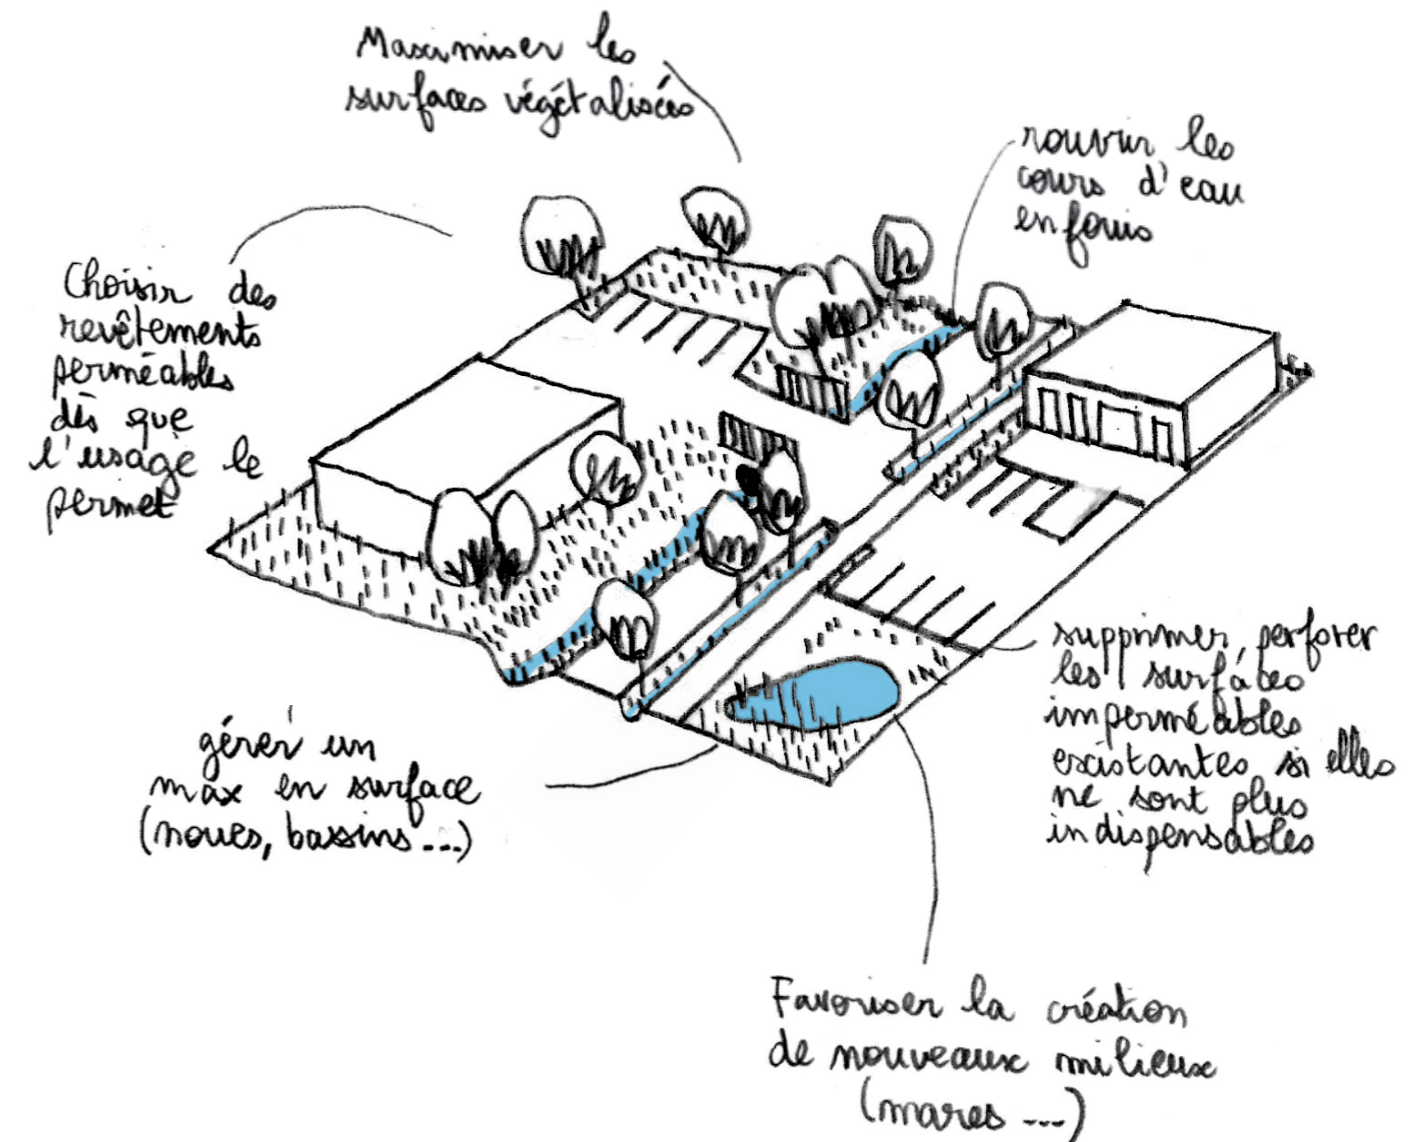 Maximiser les
surfaces végétalisées
rouvrir les
cours d'eau
enfouis
Choisir des
revêtements
perméables
dès que
l'usage le
permet
supprimer, perforer
les surfaces
imperméables
existantes si elles
ne sont plus
indispensables
gérer un
max en surface
(noues, bassins...)
Favoriser la création
de nouveaux milieux
(mares ...)